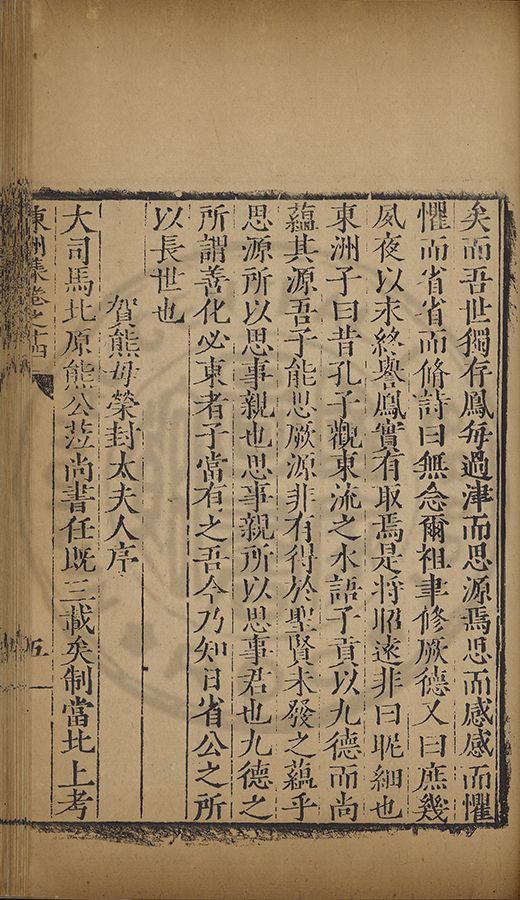 矣而吾世獨存鳳每過津而思源焉思而感感而懼
懼而省省而脩詩曰無念爾祖聿修厥德又曰庶幾
夙夜以永終譽鳳實有取焉是將昭遠非曰昵細也
東洲子曰昔孔子觀東流之水語子貢以九德而尚
蘊其源吾子能思厥源非有得於聖賢未發之蘊乎
思源所以思事親也思事親所以思事君也九德之
所謂善化必東者子當有之吾今乃知日省公之所
以長世也
賀熊母榮封太夫人序
大司馬北原熊公蒞尚書任既三載矣制當北上考
東洲集卷之十四
五